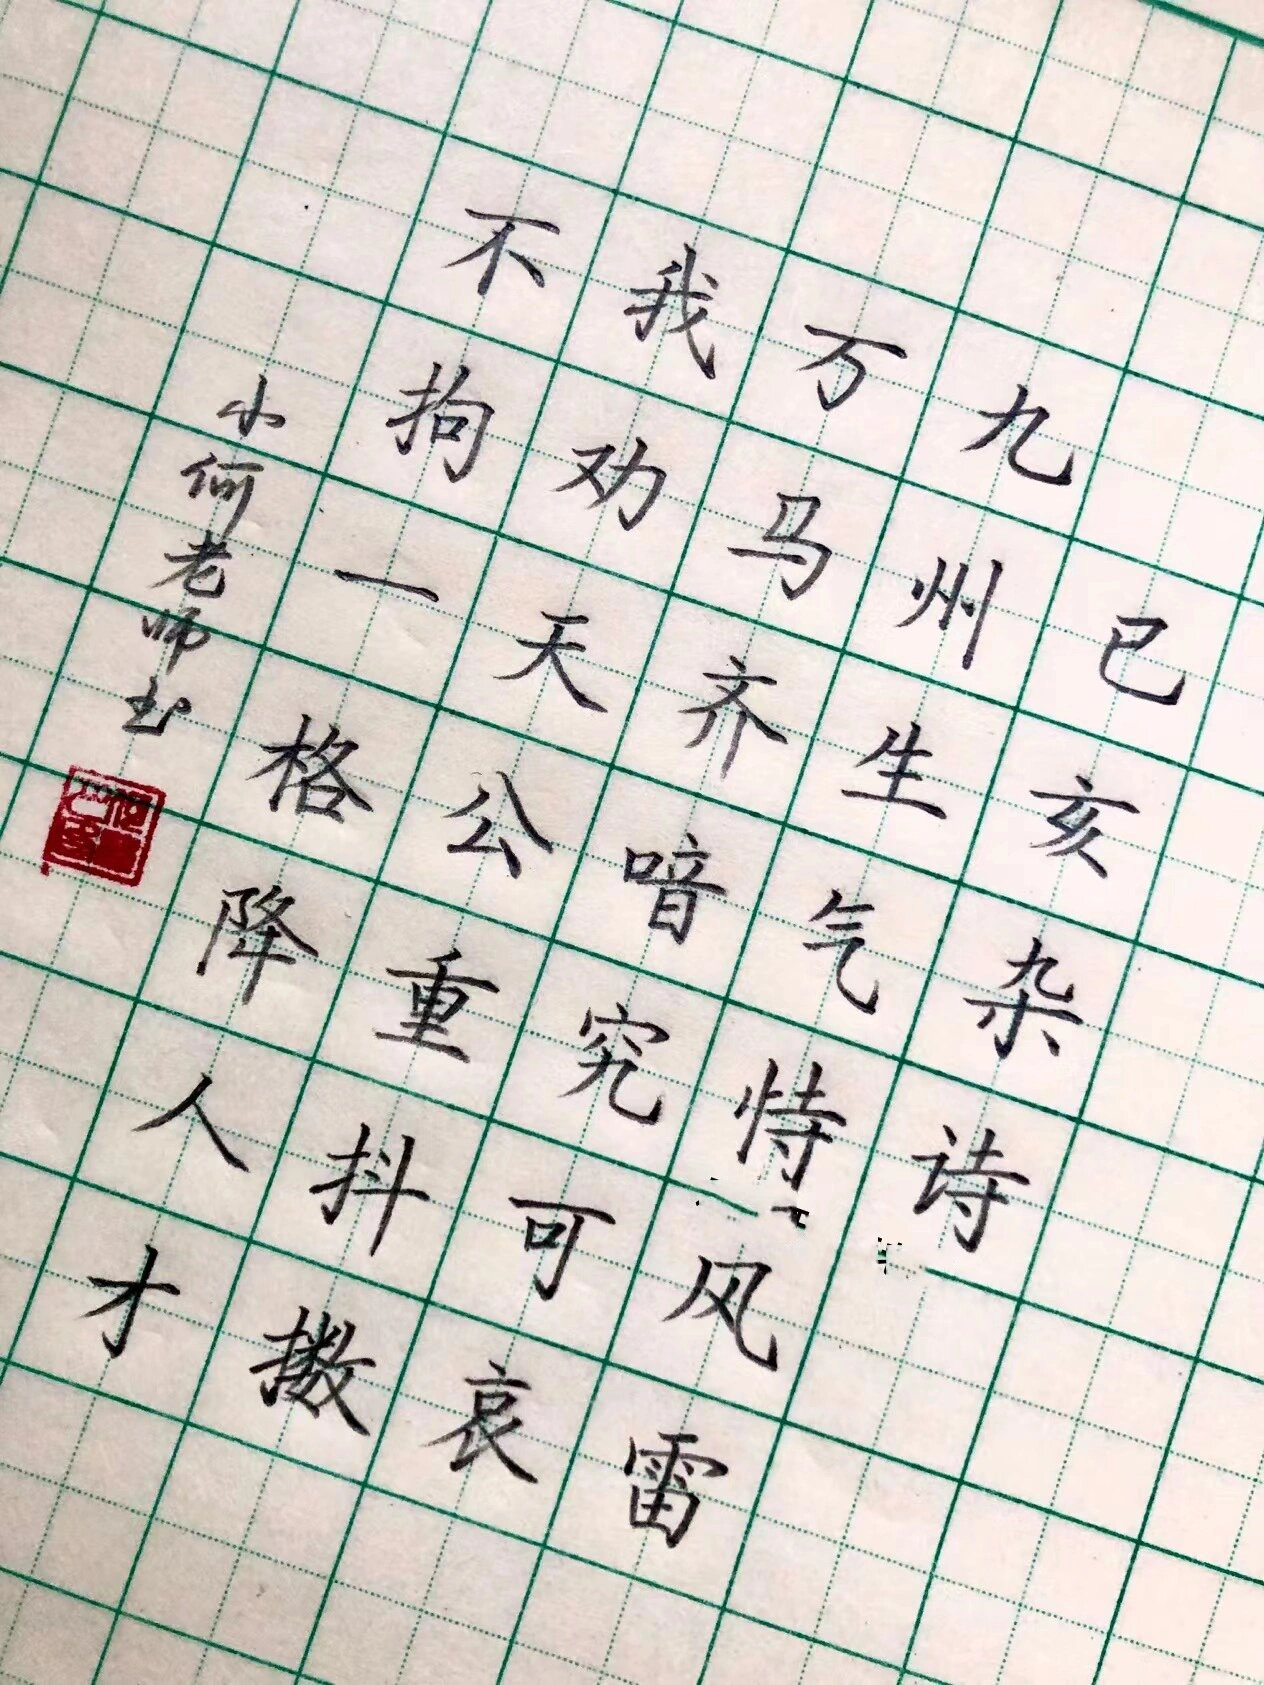 已亥杂诗
九州生气恃风雷
万马齐喑究可哀
我劝天公重抖擞
不拘一格降人才
小何老师书